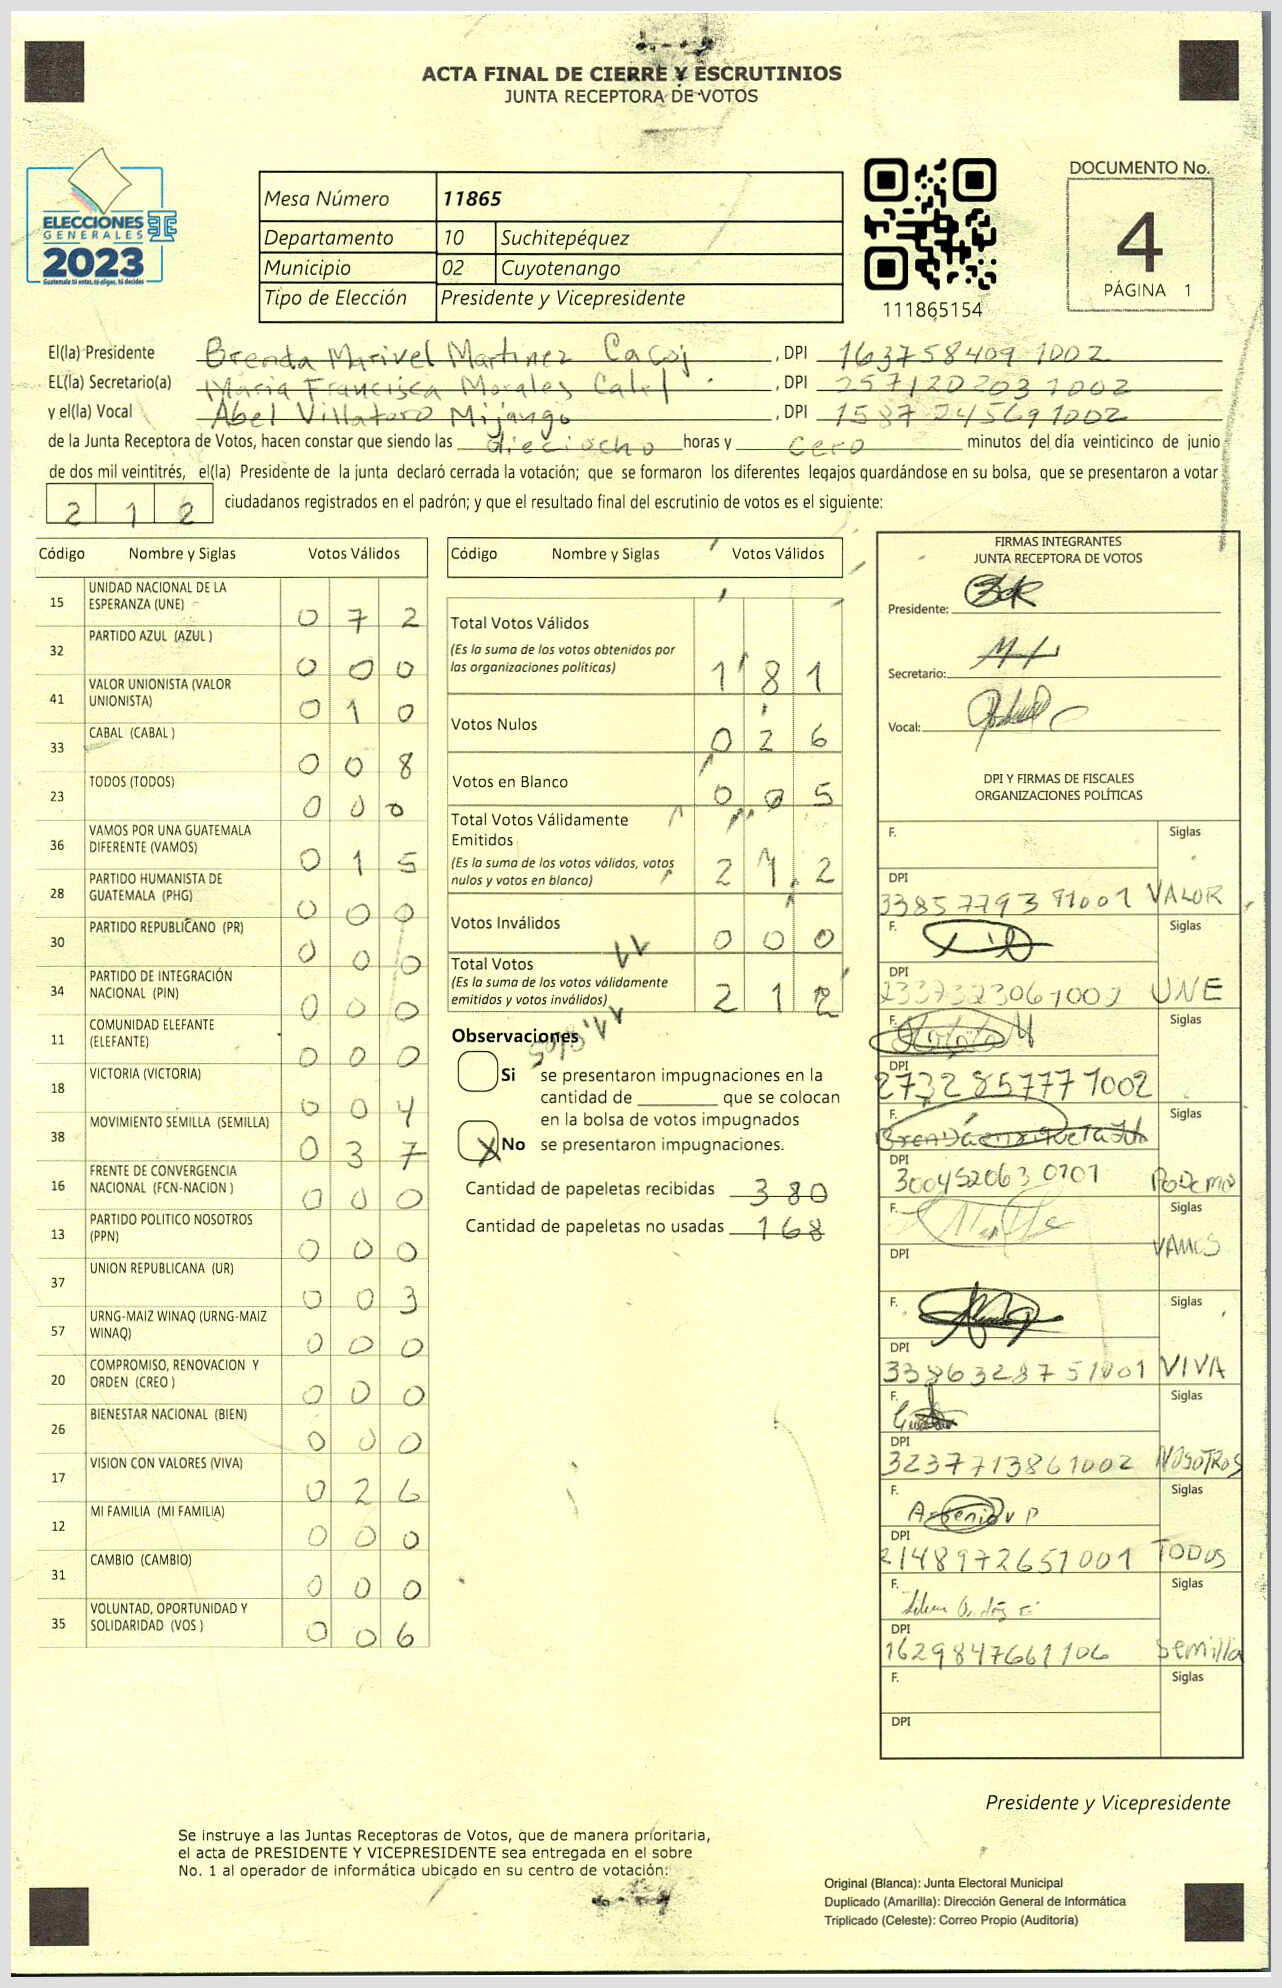 ACTA FINAL DE CIERRE Y ESCRUTINIOS
JUNTA RECEPTORA DE VOTOS
ELECCIONES
GENERALES
2023
Guatemala tú votas, tú eliges, tú decides
Mesa Número 11865
Departamento 10 Suchitepéquez
Municipio 02 Cuyotenango
Tipo de Elección Presidente y Vicepresidente
111865154
DOCUMENTO No.
4
PÁGINA 1
El(la) Presidente Brenda Marivel Martinez Cacoj , DPI 163758409 1002
EL(la) Secretario(a) Maria Francisca Morales Calel , DPI 257120203 1002
y el(la) Vocal Abel Villatoro Mijango , DPI 1587 24569 1002
de la Junta Receptora de Votos, hacen constar que siendo las dieciocho horas y cero minutos del día veinticinco de junio
de dos mil veintitrés, el(la) Presidente de la junta declaró cerrada la votación; que se formaron los diferentes legajos guardándose en su bolsa, que se presentaron a votar
212 ciudadanos registrados en el padrón; y que el resultado final del escrutinio de votos es el siguiente:
Código Nombre y Siglas Votos Válidos
15 UNIDAD NACIONAL DE LA
ESPERANZA (UNE) 0 7 2
32 PARTIDO AZUL (AZUL ) 0 0 0
41 VALOR UNIONISTA (VALOR
UNIONISTA) 0 1 0
33 CABAL (CABAL ) 0 0 8
23 TODOS (TODOS) 0 0 0
36 VAMOS POR UNA GUATEMALA
DIFERENTE (VAMOS) 0 1 5
28 PARTIDO HUMANISTA DE
GUATEMALA (PHG) 0 0 0
30 PARTIDO REPUBLICANO (PR) 0 0 0
34 PARTIDO DE INTEGRACIÓN
NACIONAL (PIN) 0 0 0
11 COMUNIDAD ELEFANTE
(ELEFANTE) 0 0 0
18 VICTORIA (VICTORIA) 0 0 4
38 MOVIMIENTO SEMILLA (SEMILLA) 0 3 7
16 FRENTE DE CONVERGENCIA
NACIONAL (FCN-NACION ) 0 0 0
13 PARTIDO POLITICO NOSOTROS
(PPN) 0 0 0
37 UNION REPUBLICANA (UR) 0 0 3
57 URNG-MAIZ WINAQ (URNG-MAIZ
WINAQ) 0 0 0
20 COMPROMISO, RENOVACION Y
ORDEN (CREO ) 0 0 0
26 BIENESTAR NACIONAL (BIEN) 0 0 0
17 VISION CON VALORES (VIVA) 0 2 6
12 MI FAMILIA (MI FAMILIA) 0 0 0
31 CAMBIO (CAMBIO) 0 0 0
35 VOLUNTAD, OPORTUNIDAD Y
SOLIDARIDAD (VOS ) 0 0 6
Código Nombre y Siglas Votos Válidos
Total Votos Válidos
(Es la suma de los votos obtenidos por
las organizaciones políticas) 1 8 1
Votos Nulos 0 2 6
Votos en Blanco 0 0 5
Total Votos Válidamente
Emitidos
(Es la suma de los votos válidos, votos
nulos y votos en blanco) 2 1 2
Votos Inválidos 0 0 0
Total Votos
(Es la suma de los votos válidamente
emitidos y votos inválidos) 2 1 2
Observaciones
Si se presentaron impugnaciones en la
cantidad de ________ que se colocan
en la bolsa de votos impugnados
X No se presentaron impugnaciones.
Cantidad de papeletas recibidas 380
Cantidad de papeletas no usadas 168
FIRMAS INTEGRANTES
JUNTA RECEPTORA DE VOTOS
Presidente:
Secretario:
Vocal:
DPI Y FIRMAS DE FISCALES
ORGANIZACIONES POLÍTICAS
F. Siglas
DPI
33857793 91001 VALOR
F. Siglas
DPI
2337323061002 UNE
F. Siglas
DPI
2732857771002
F. Siglas
DPI
300452063 0101 PODEMOS
F. Siglas
DPI VAMOS
F. Siglas
DPI
3386328751001 VIVA
F. Siglas
DPI
3237713861002 NOSOTROS
F. Siglas
DPI
2148972651001 TODOS
F. Siglas
DPI
1629847661106 Semilla
F. Siglas
DPI
Presidente y Vicepresidente
Se instruye a las Juntas Receptoras de Votos, que de manera prioritaria,
el acta de PRESIDENTE Y VICEPRESIDENTE sea entregada en el sobre
No. 1 al operador de informática ubicado en su centro de votación:
Original (Blanca): Junta Electoral Municipal
Duplicado (Amarilla): Dirección General de Informática
Triplicado (Celeste): Correo Propio (Auditoría)